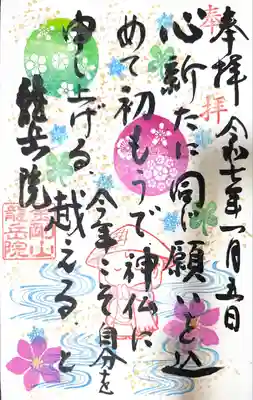 奉拝
奉拝 令和七年一月五日
心新たに同じ願いを込
めて初もうで神仏に
申し上げる、今年こそ自分を
越える、と
龍岳院
金剛山
龍岳院